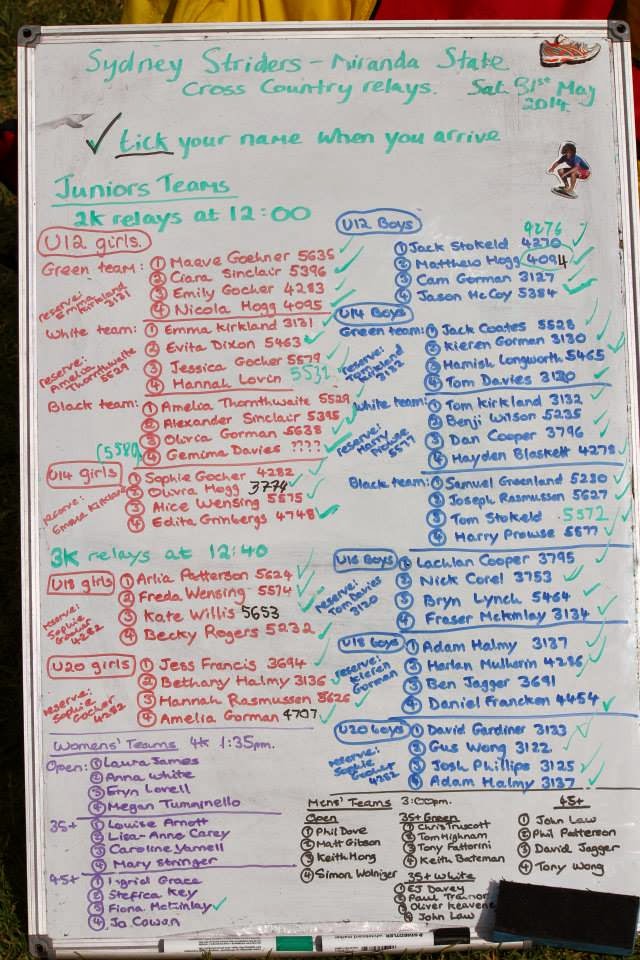 Sydney Striders - Miranda State
Cross Country relays. Sat 31st May
2014
✓ tick your name when you arrive
Juniors Teams
2k relays at 12:00
U12 girls.
Green team: ① Maeve Goehner 5635
② Ciara Sinclair 5396
③ Emily Gocher 4283
④ Nicola Hogg 4095
reserve: Emma Kirkland 3131
White team: ① Emma Kirkland 3131
② Evita Dixon 5463
③ Jessica Gocher 5579
④ Hannah Lovin 5531
reserve: Amelia Thornthwaite 5529
Black team: ① Amelia Thornthwaite 5529
② Alexander Sinclair 5395
③ Olivia Gorman 5638
④ Gemima Davies ????
(5580)
U14 girls ① Sophie Gocher 4282
② Olivia Hogg 3774
③ Alice Wensing 5575
④ Edita Grinbergs 4748
reserve: Emma Kirkland
3k relays at 12:40
U18 girls ① Arlia Patterson 5624
② Freda Wensing 5574
③ Kate Willis 5653
④ Becky Rogers 5232
reserve: Sophie Gocher 4282
U20 girls ① Jess Francis 3694
② Bethany Halmy 3136
③ Hannah Rasmussen 5626
④ Amelia Gorman 4707
reserve: Sophie Gocher 4282
Womens' Teams 4k 1:35pm.
Open: ① Laura James
② Anna White
③ Eryn Lovell
④ Megan Tumminello
35+ ① Louise Arnott
② Lisa-Anne Carey
③ Caroline Yarnell
④ Mary Stringer
45+ ① Ingrid Grace
② Stefica Key
③ Fiona McKinlay
④ Jo Cowan
U12 Boys
9276
① Jack Stokeld 4270
② Matthew Hogg 4094
③ Cam Gorman 3127
④ Jason McCoy 5384
U14 Boys
Green team: ① Jack Coates 5528
② Kieren Gorman 3130
③ Hamish Longworth 5465
④ Tom Davies 3120
reserve: Tom Kirkland 3132
White team: ① Tom Kirkland 3132
② Benji Wilson 5235
③ Dan Cooper 3796
④ Hayden Blaskett 4278
reserve: Harry Prowse 5577
Black team: ① Samuel Greenland 5230
② Joseph Rasmussen 5627
③ Tom Stokeld 5572
④ Harry Prowse 5577
U16 Boys ① Lachlan Cooper 3795
② Nick Corel 3753
③ Bryn Lynch 5464
④ Fraser McKinlay 3134
reserve: Tom Davies 3120
U18 boys ① Adam Halmy 3137
② Harlan Mulherin 4286
③ Ben Jagger 3691
④ Daniel Francken 4454
reserve: Kieren Gorman
U20 boys ① David Gardiner 3123
② Gus Wong 3122
③ Josh Phillips 3125
④ Adam Halmy 3137
reserve: Sophie Gocher 4282
Mens' Teams 3:00pm.
Open
① Phil Dove
② Matt Gibson
③ Keith Hong
④ Simon Wolniger
35+ Green
① Chris Truscott
② Tom Highnam
③ Tony Fattorini
④ Keith Bateman
35+ White
① EJ Davey
② Paul Trainor
③ Oliver Keavene
④ John Law
45+
① John Law
② Phil Patterson
③ David Jagger
④ Tony Wong
STAEDTLER